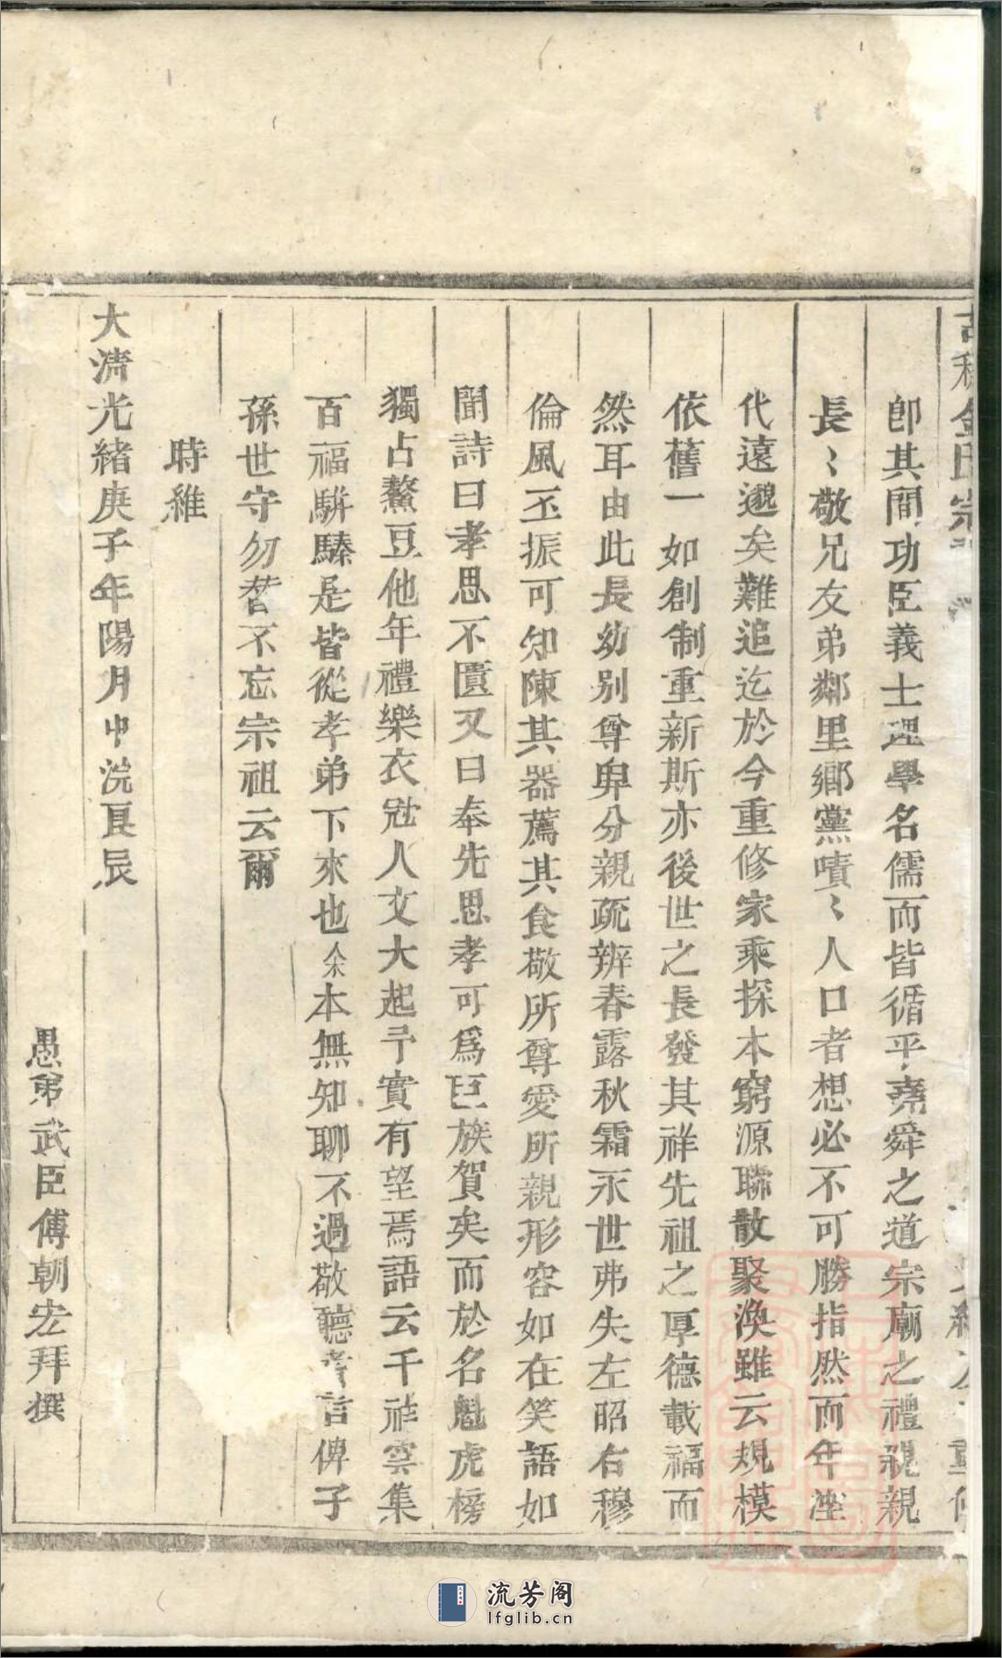 金氏宗
重修
卽其間功臣義士理學名儒而皆循乎堯舜之道宗廟之禮親親
長〻敬兄友弟鄰里鄉黨嘖〻人口者想必不可勝指然而年湮
代遠邈矣難追迄於今重修家乘探本窮源聯散聚渙雖云規模
依舊一如創制重新斯亦後世之長發其祥先祖之厚德載福而
然耳由此長幼别尊卑分親疏辨春露秋霜永世弗失左昭右穆
倫風丕振可知陳其器薦其食敬所尊愛所親形容如在笑語如
聞詩曰孝思不匱又曰奉先思孝可爲巨族賀矣而於名魁虎榜
獨占鰲豆他年禮樂衣冠人文大起予實有望焉語云千祥雲集
百福駢臻是皆從孝弟下來也余本無知聊不過敬聽者言俾子
孫世守勿替不忘宗祖云爾
時維
大清光緒庚子年陽月中浣良辰
愚弟武臣傅朝宏拜撰
流芳阁
lfglib.cn